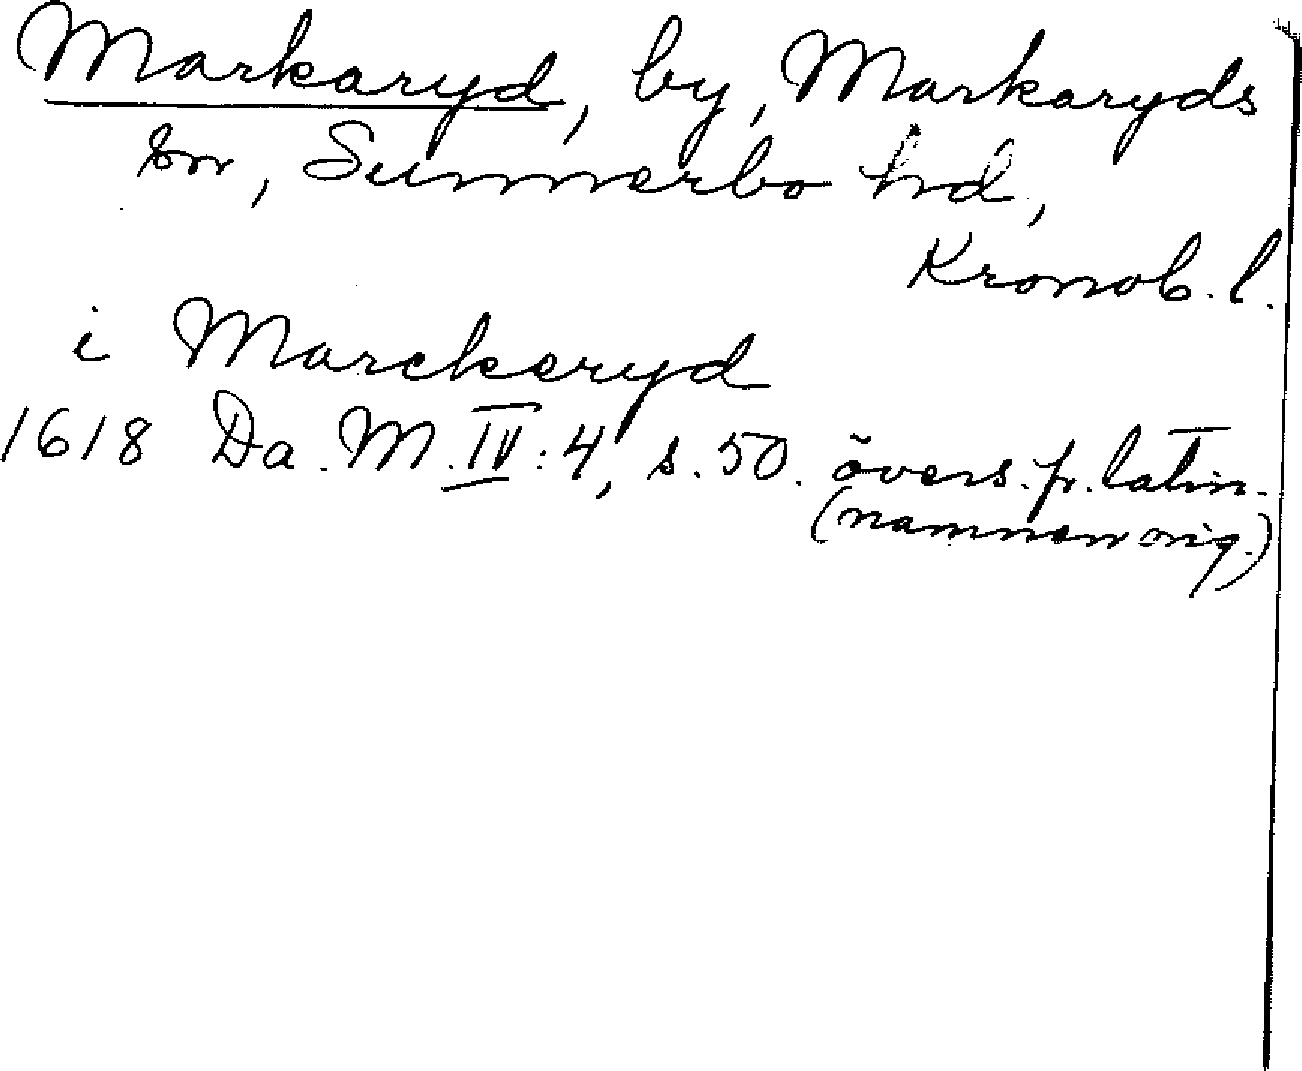 Markaryd, by, Markaryds
sn, Sunnerbo hd,
Kronob. l.
i Marckeryd
1618 Da. M. IV:4, s. 50. övers. fr. latin.
(namnen orig.)